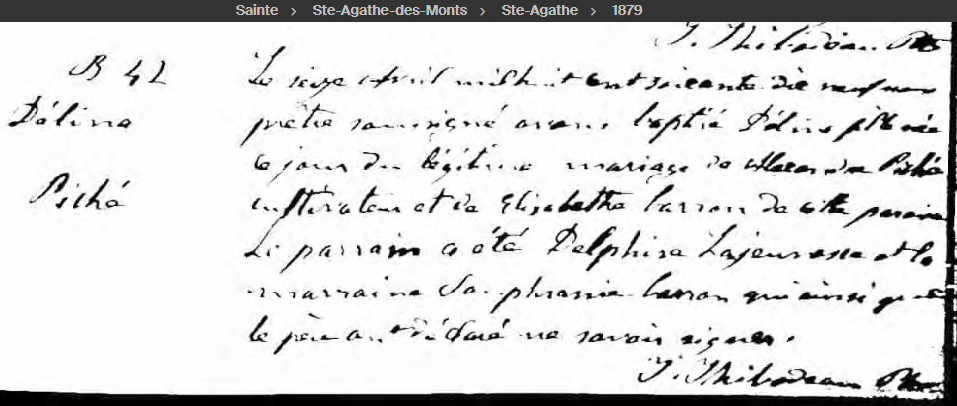 Sainte > Ste-Agathe-des-Monts > Ste-Agathe > 1879
J. Thibodeau Ptre
B 42
Délina
Piché
Le seize Avril mil huit cent soixante dix neuf nous
prêtre soussigné avons baptisé Délina fille née
ce jour du légitime mariage de Alexandre Piché
cultivateur et de Elizabethe Carron de cette paroisse
Le parrain a été Delphine Lajeunesse et la
marraine Sophranie Carron qui ainsi que
le père ont déclaré ne savoir signer.
J. Thibodeau Ptre